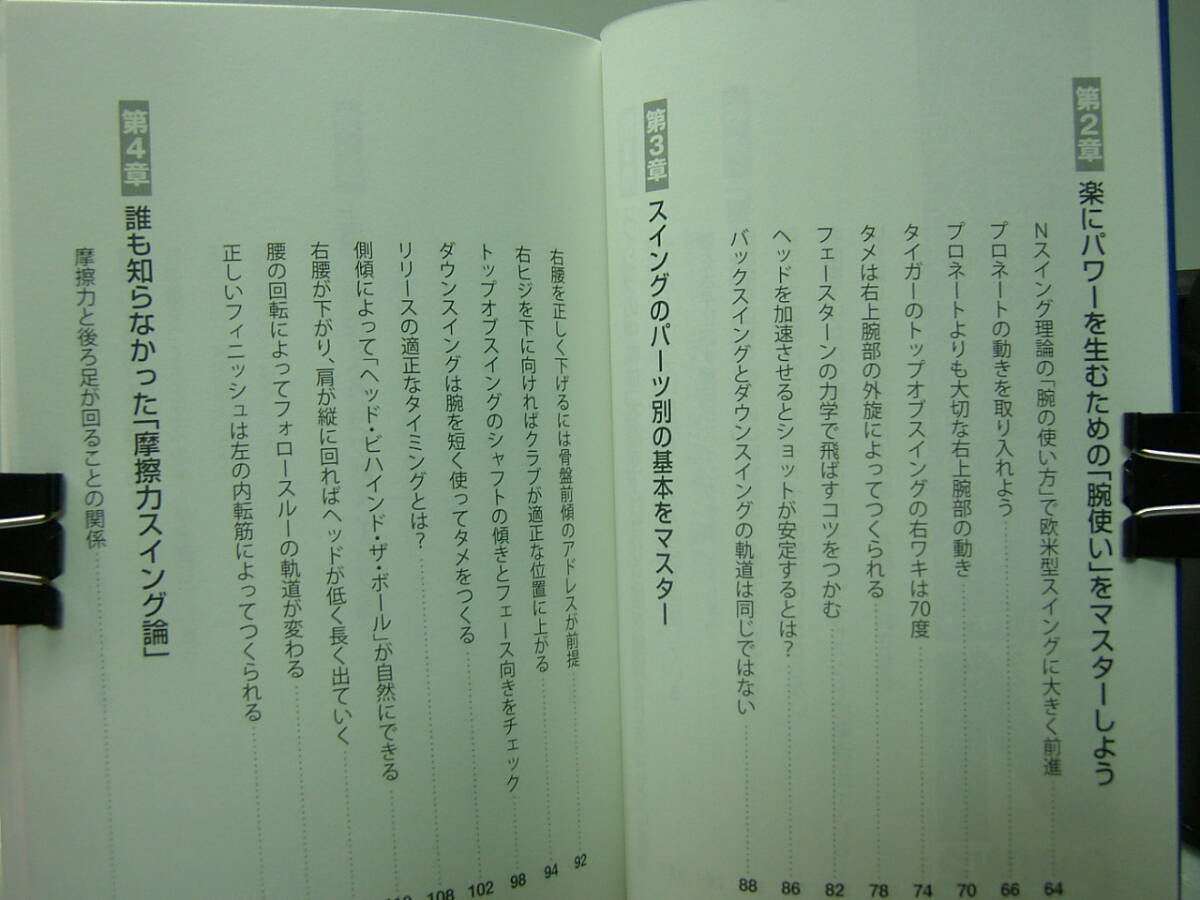 第2章 楽にパワーを生むための「腕使い」をマスターしよう
Nスイング理論の「腕の使い方」で欧米型スイングに大きく前進 64
プロネートの動きを取り入れよう 66
プロネートよりも大切な右上腕部の動き 70
タイガーのトップオブスイングの右ワキは70度 74
タメは右上腕部の外旋によってつくられる 78
フェースターンの力学で飛ばすコツをつかむ 82
ヘッドを加速させるとショットが安定するとは? 86
バックスイングとダウンスイングの軌道は同じではない 88
第3章 スイングのパーツ別の基本をマスター
右腰を正しく下げるには骨盤前傾のアドレスが前提 92
右ヒジを下に向ければクラブが適正な位置に上がる 94
トップオブスイングのシャフトの傾きとフェース向きをチェック 98
ダウンスイングは腕を短く使ってタメをつくる 102
リリースの適正なタイミングとは? 108
側傾によって「ヘッド・ビハインド・ザ・ボール」が自然にできる
右腰が下がり、肩が縦に回ればヘッドが低く長く出ていく
腰の回転によってフォロースルーの軌道が変わる
正しいフィニッシュは左の内転筋によってつくられる
第4章 誰も知らなかった「摩擦力スイング論」
摩擦力と後ろ足が回ることの関係